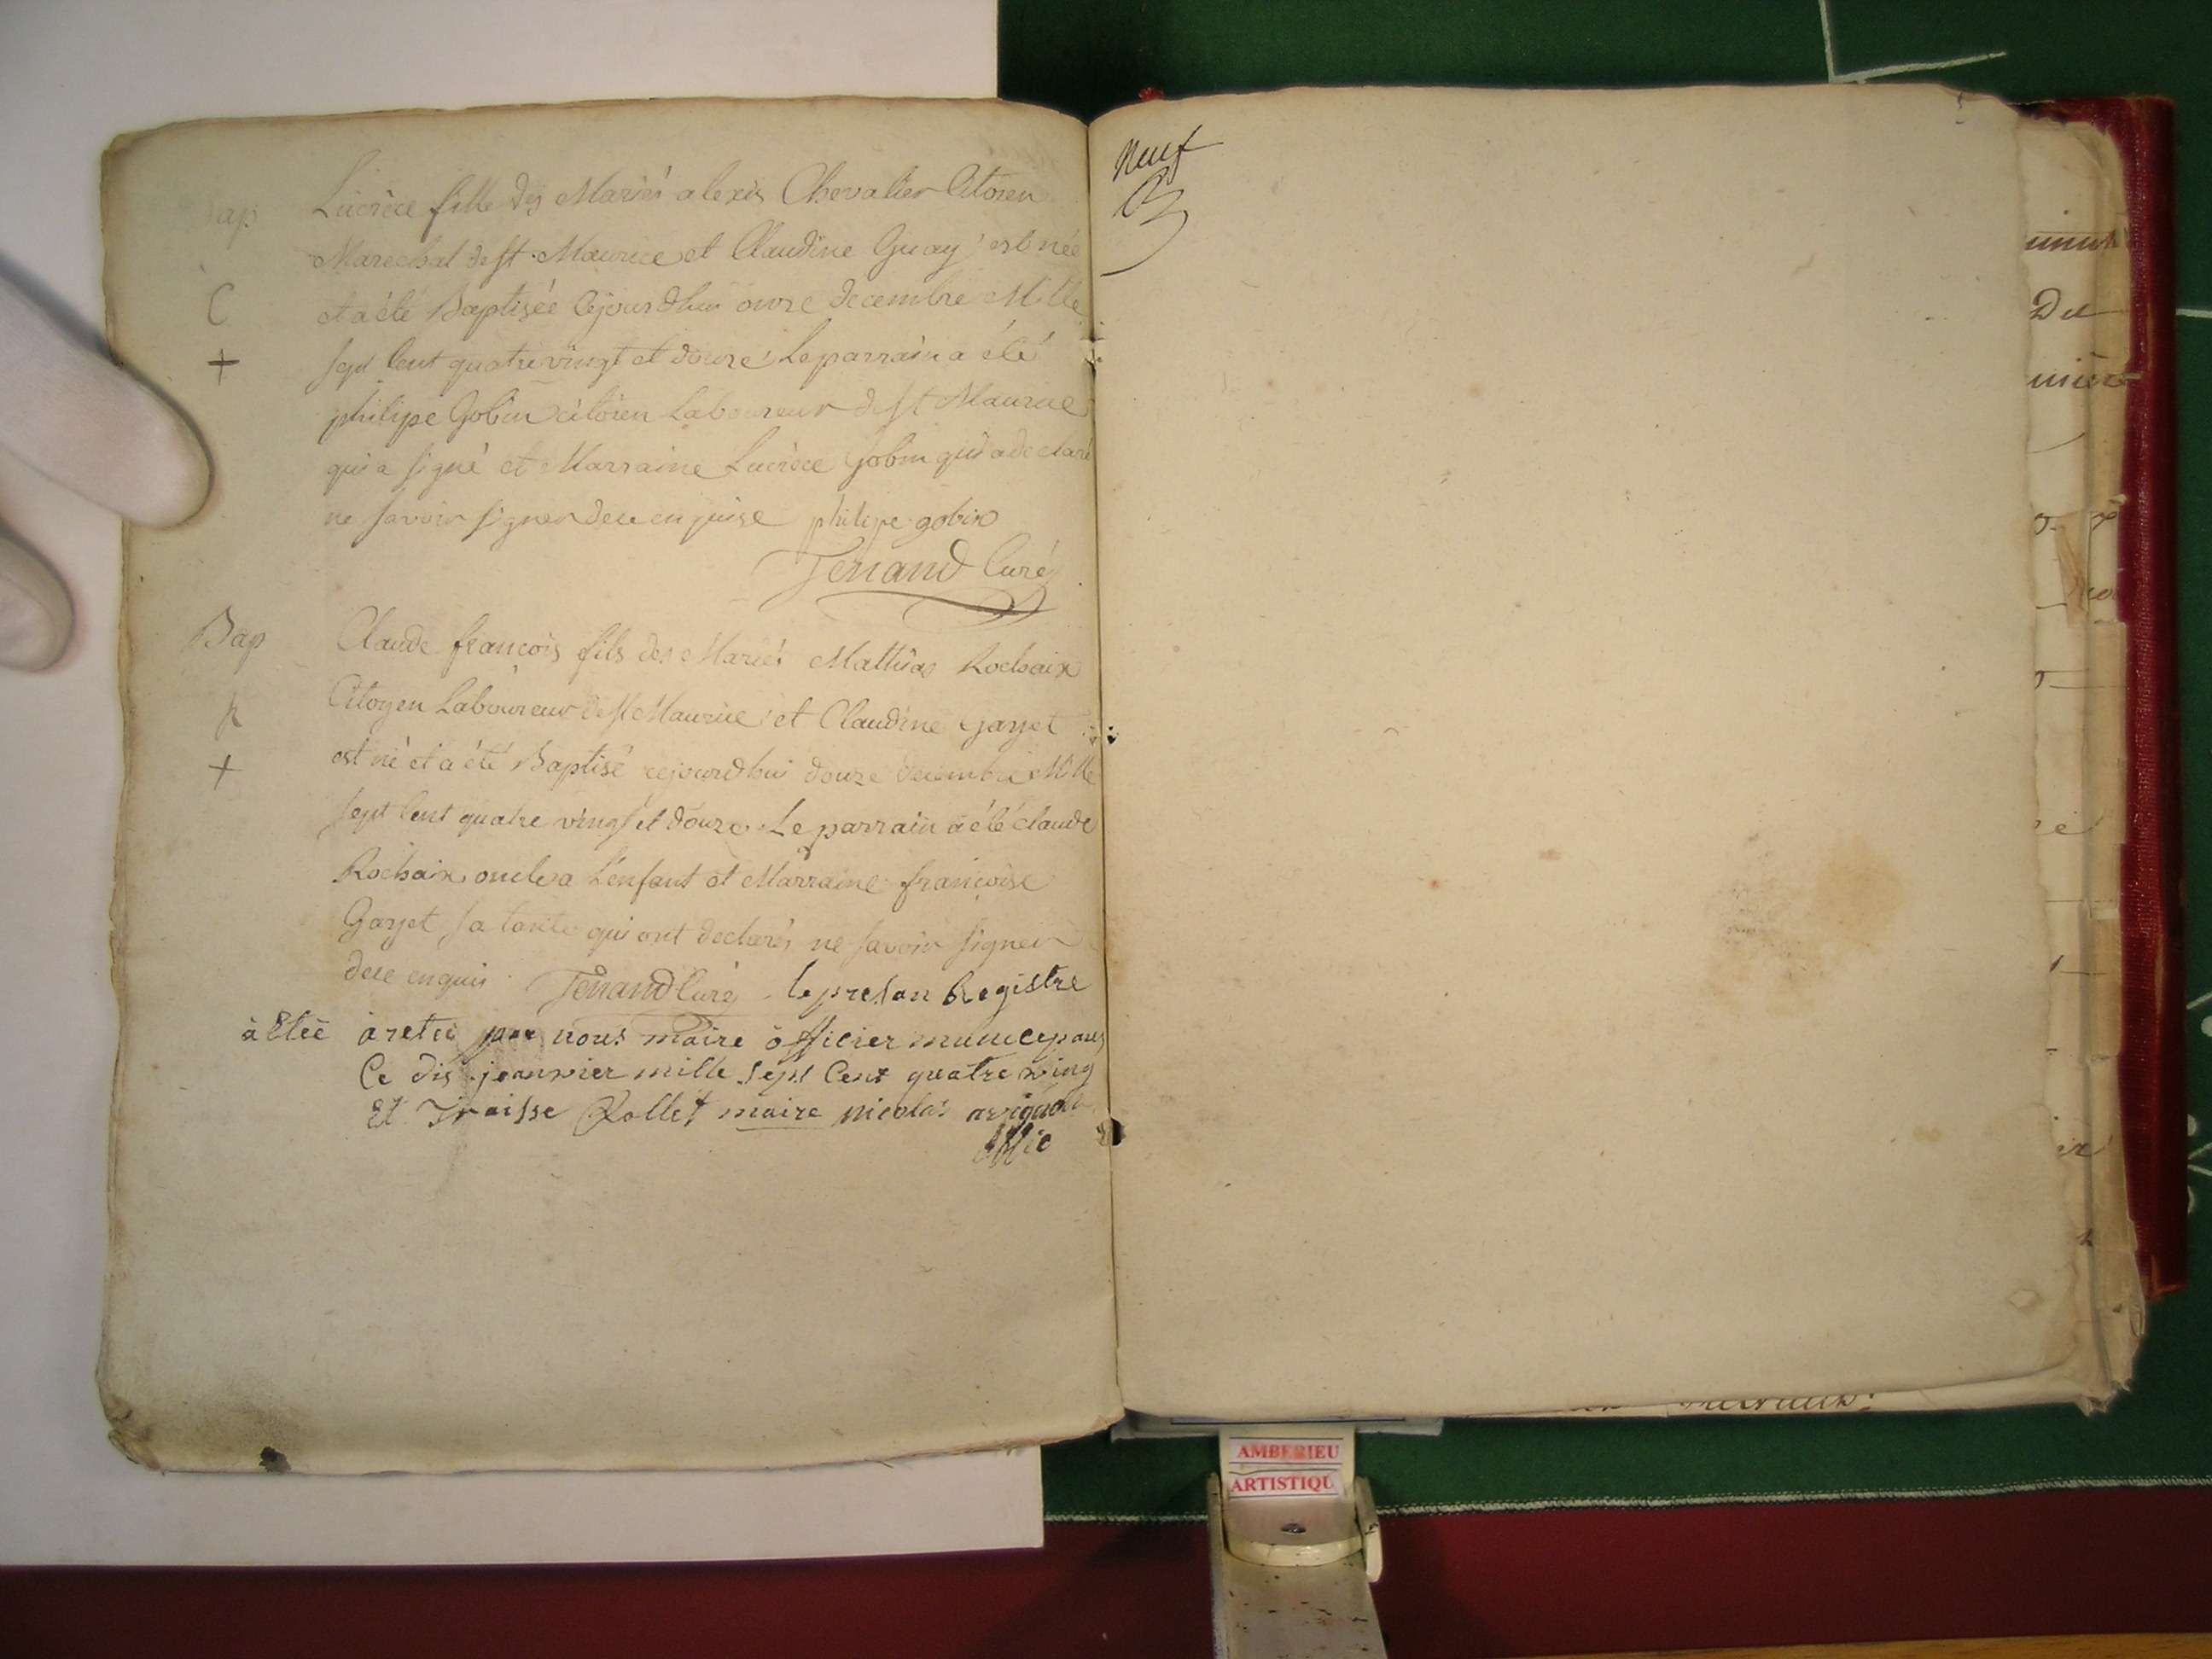 Bap
Lucrèce fille des Mariés alexis Chevalier Citoien
Marechal de st. Maurice et Claudine Guay est née
C
et a été Baptisée Cejourdhui onze decembre Mille
+
sept Cent quatre vingt et douze, Le parrain a été
philipe Gobin citoien Laboureur de st Maurice
qui a signé et Marraine Lucrèce Gobin qui a declaré
ne savoir signer de ce enquise philipe gobin
Tenand Curé
Bap
Claude françois fils des Mariés Mathias Rochaix
Citoyen Laboureur de st Maurice et Claudine Garjet
+
est né et a été Baptisé cejourdhui douze decembre Mille
sept Cent quatre vingt et douze. Le parrain a été claude
Rochaix oncle a L'enfant et Marraine françoise
Garjet sa tante qui ont declarés ne savoir signer
de ce enquis Tenand Curé le presan Registre
à Etéé àreteé par nous maire officier municepaus
Ce dis jeanvier mille sept Cent quatre ving
Et Traisse Rollet maire nicolas
offie
Neuf
Du
AMBERIEU
ARTISTIQU